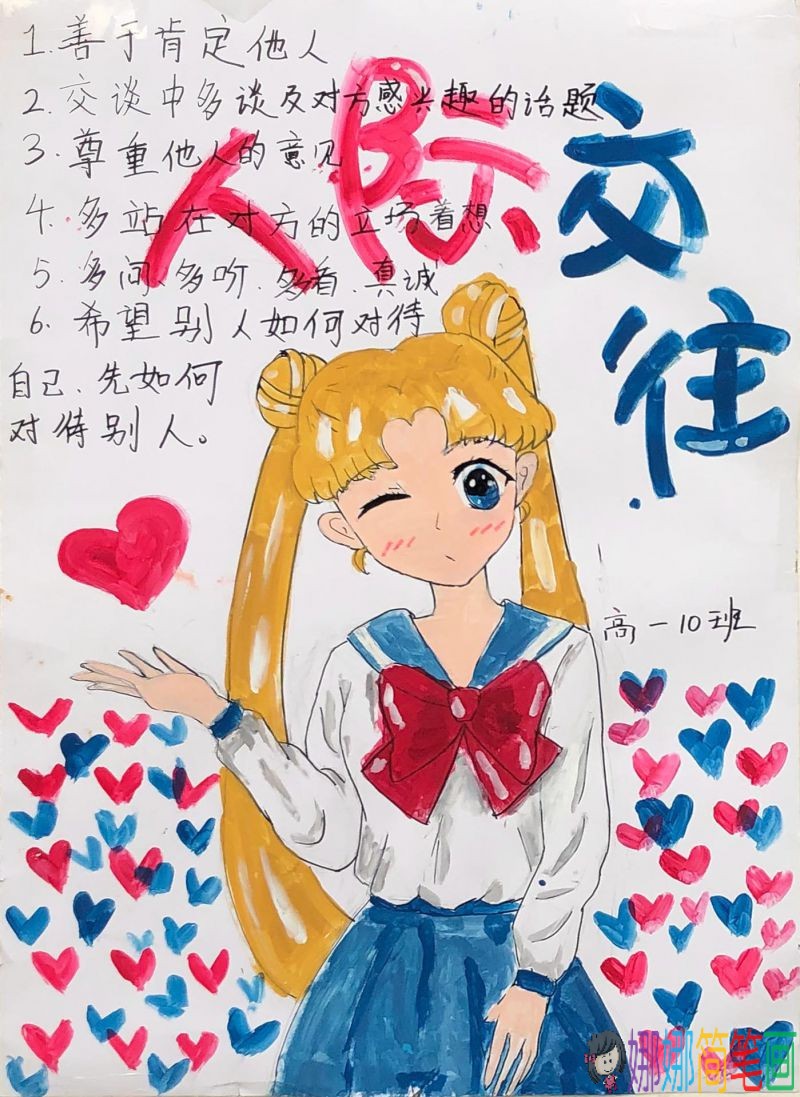 1.善于肯定他人
2.交谈中多谈及对方感兴趣的话题
3.尊重他人的意见
4.多站在对方的立场着想
5.多问、多听、多看、真诚
6.希望别人如何对待
自己、先如何
对待别人。
人际
交
往
高一10班
娜娜简笔画